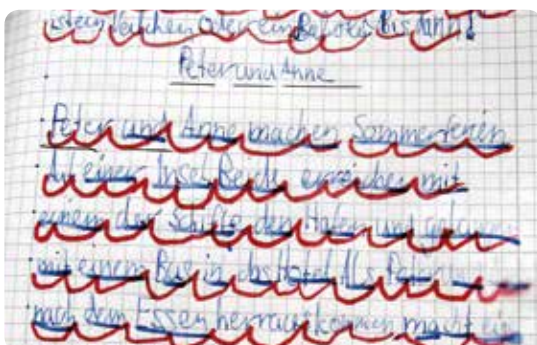 ist ein Veilchen Oder ein Bis dann!
Peter und Anne
Peter und Anne machen Sommerferien
Auf einer Insel Beide erreichen mit
einem der Schiffe den Hafen und
mit einem Bus in das Hotel Als Peter
nach dem Essen herrauskommen macht ein